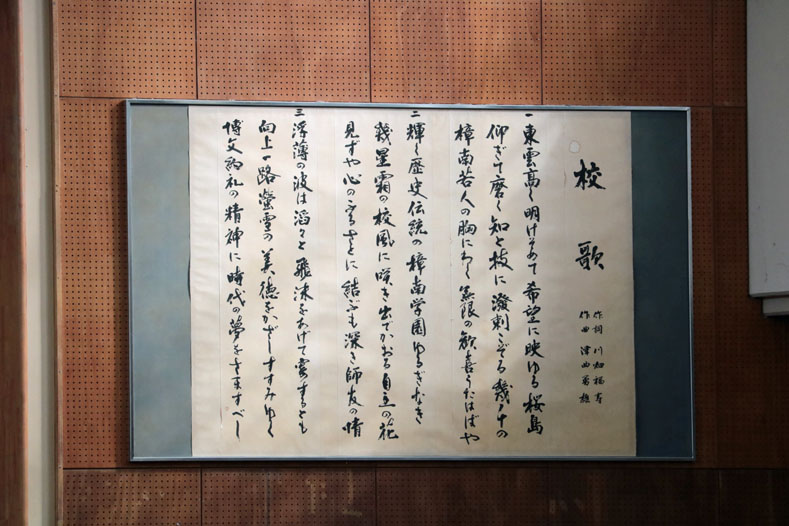 校歌
作詞 川畑
作曲 津曲
一 東雲高く明けそめて 希望に映ゆる桜島
仰ぎて磨く知と技に 溌剌こぞる幾千の
樟南若人の胸にわく 無限の歓喜うたはばや
二 輝く歴史伝統の 樟南学園ゆるぎなき
幾星霜の校風に 咲き出でかおる自立の花
見ずや心のふるさとに 結ぶも深き師友の情
三 浮薄の波は滔々と 飛沫をあげて寄するとも
向上一路螢雪の 美徳をかざしすすみゆく
博文約礼の精神に 時代の夢を